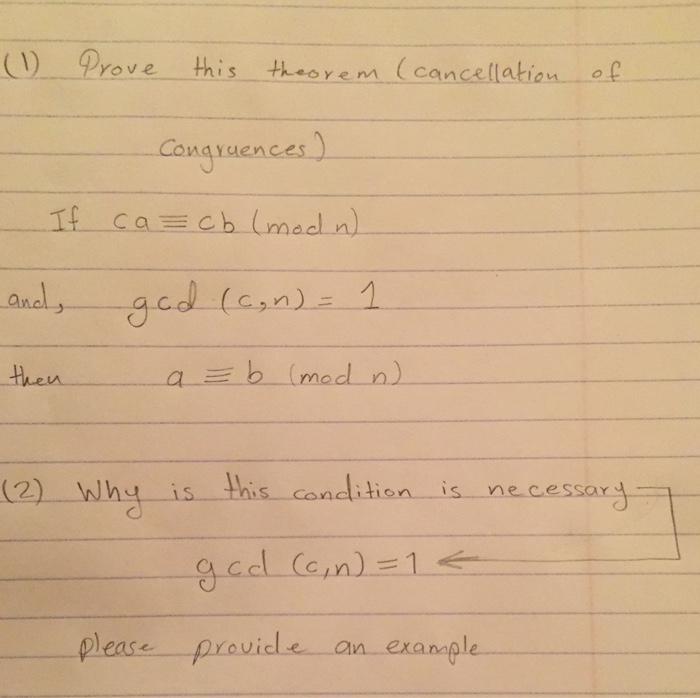 (1) Prove this theorem (cancellation of
Congruences)
If ca ≡ cb (mod n)
and, gcd (c,n) = 1
then a ≡ b (mod n)
(2) Why is this condition is necessary
gcd (c,n) = 1 ←
please provide an example